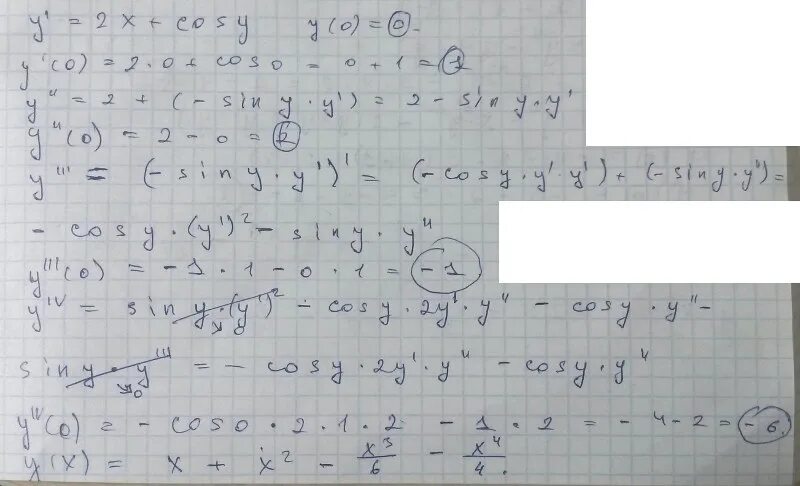 y' = 2x + cosy y(0) = 0.
y'(0) = 2·0 + cos0 = 0 + 1 = 1
y'' = 2 + (- sin y · y') = 2 - sin y · y'
y''(0) = 2 - 0 = 2
y''' = (- sin y · y')' = (- cosy · y' · y') + (- sin y · y'') =
- cosy · (y')² - sin y · y''
y'''(0) = - 1 · 1 - 0 · 1 = - 1
y^IV = sin y · (y')² - cosy · 2y' · y'' - cosy · y'' -
sin y · y''' = - cosy · 2y' · y'' - cosy · y''
→0
y^IV(0) = - cos0 · 2 · 1 · 2 - 1 · 2 = - 4 - 2 = - 6.
y(x) = x + x² - x³/6 - x⁴/4.